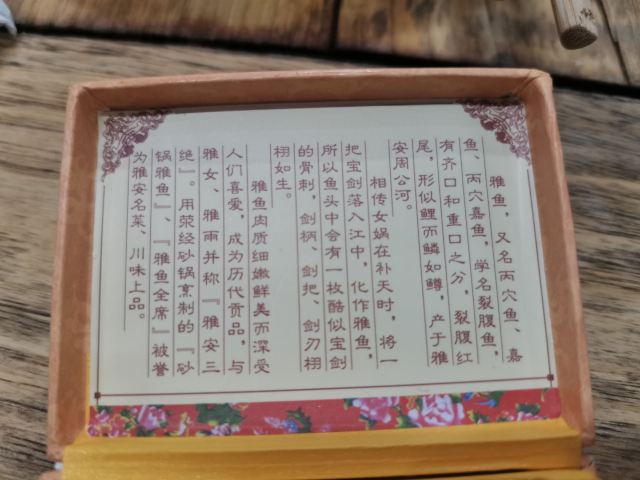 雅鱼，又名丙穴鱼、嘉
鱼、丙穴嘉鱼，学名裂腹鱼，
有齐口和重口之分，裂腹红
尾，形似鲤而鳞如鳟，产于雅
安周公河。
相传女娲在补天时，将一
把宝剑落入江中，化作雅鱼，
所以鱼头中会有一枚酷似宝剑
的骨刺，剑柄、剑把、剑刃栩
栩如生。
雅鱼肉质细嫩鲜美而深受
人们喜爱，成为历代贡品，与
雅女、雅雨并称『雅安三
绝』。用荥经砂锅烹制的『砂
锅雅鱼』、『雅鱼全席』被誉
为雅安名菜、川味上品。